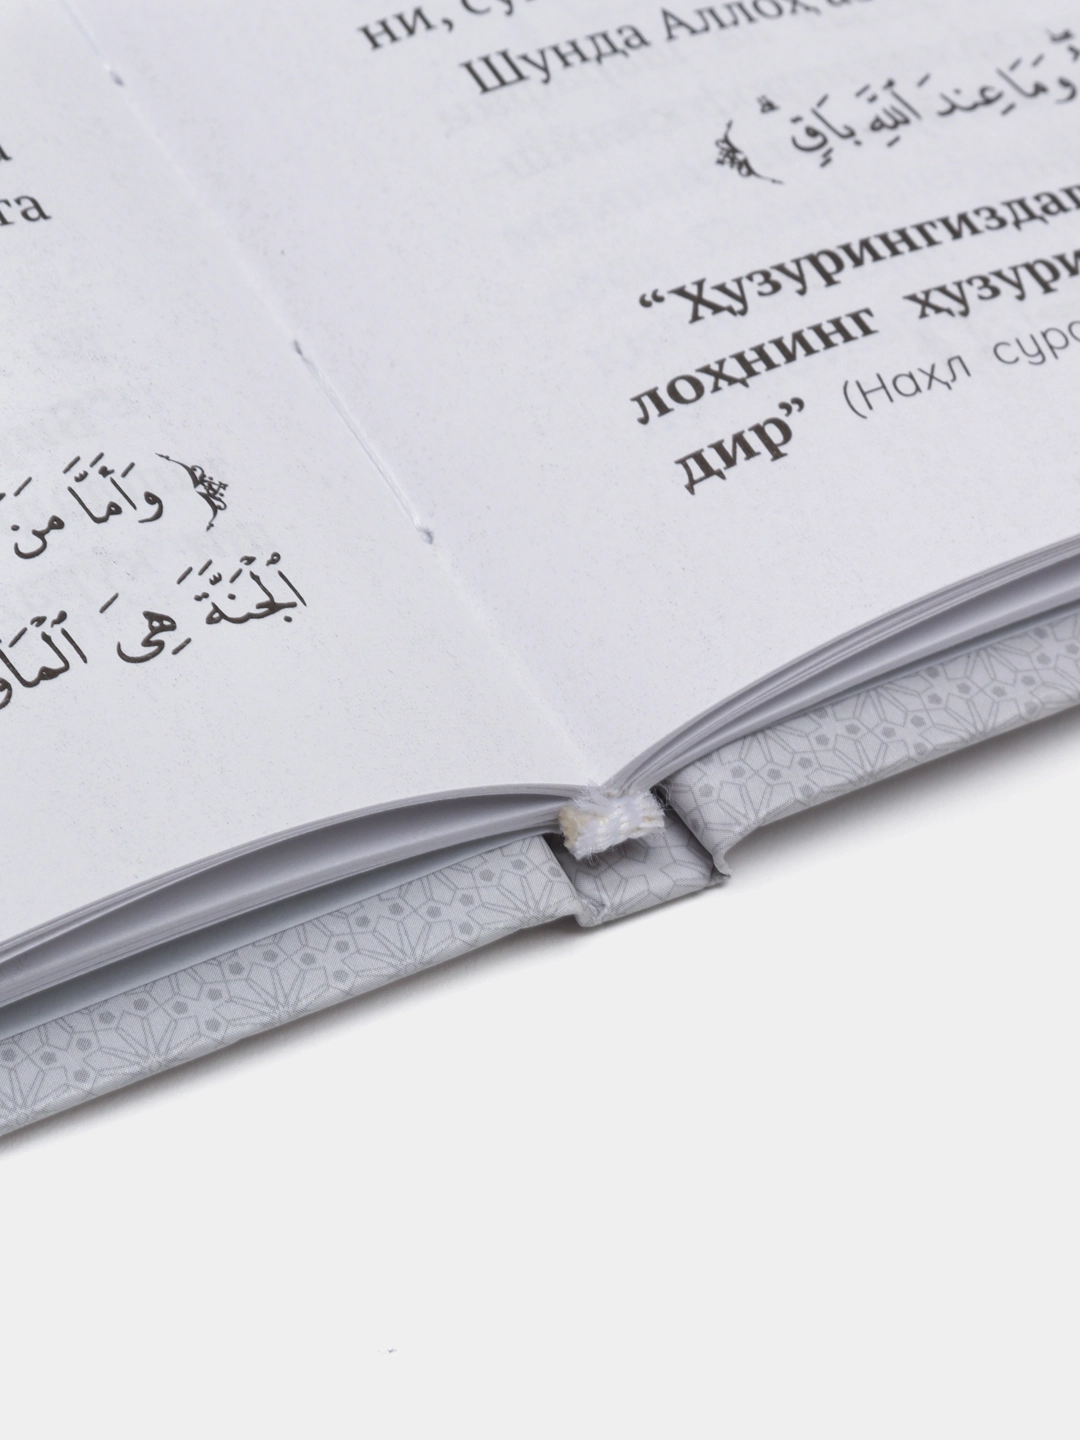 га
وَأَمَّا مَنْ
ٱلْجَنَّةَ هِىَ
ни,
Шунда Аллоҳ
وَمَا عِندَ ٱللَّهِ بَاقٍ ۗ
“Ҳузурингиздаг
лоҳнинг ҳузури
дир” (Наҳл сура